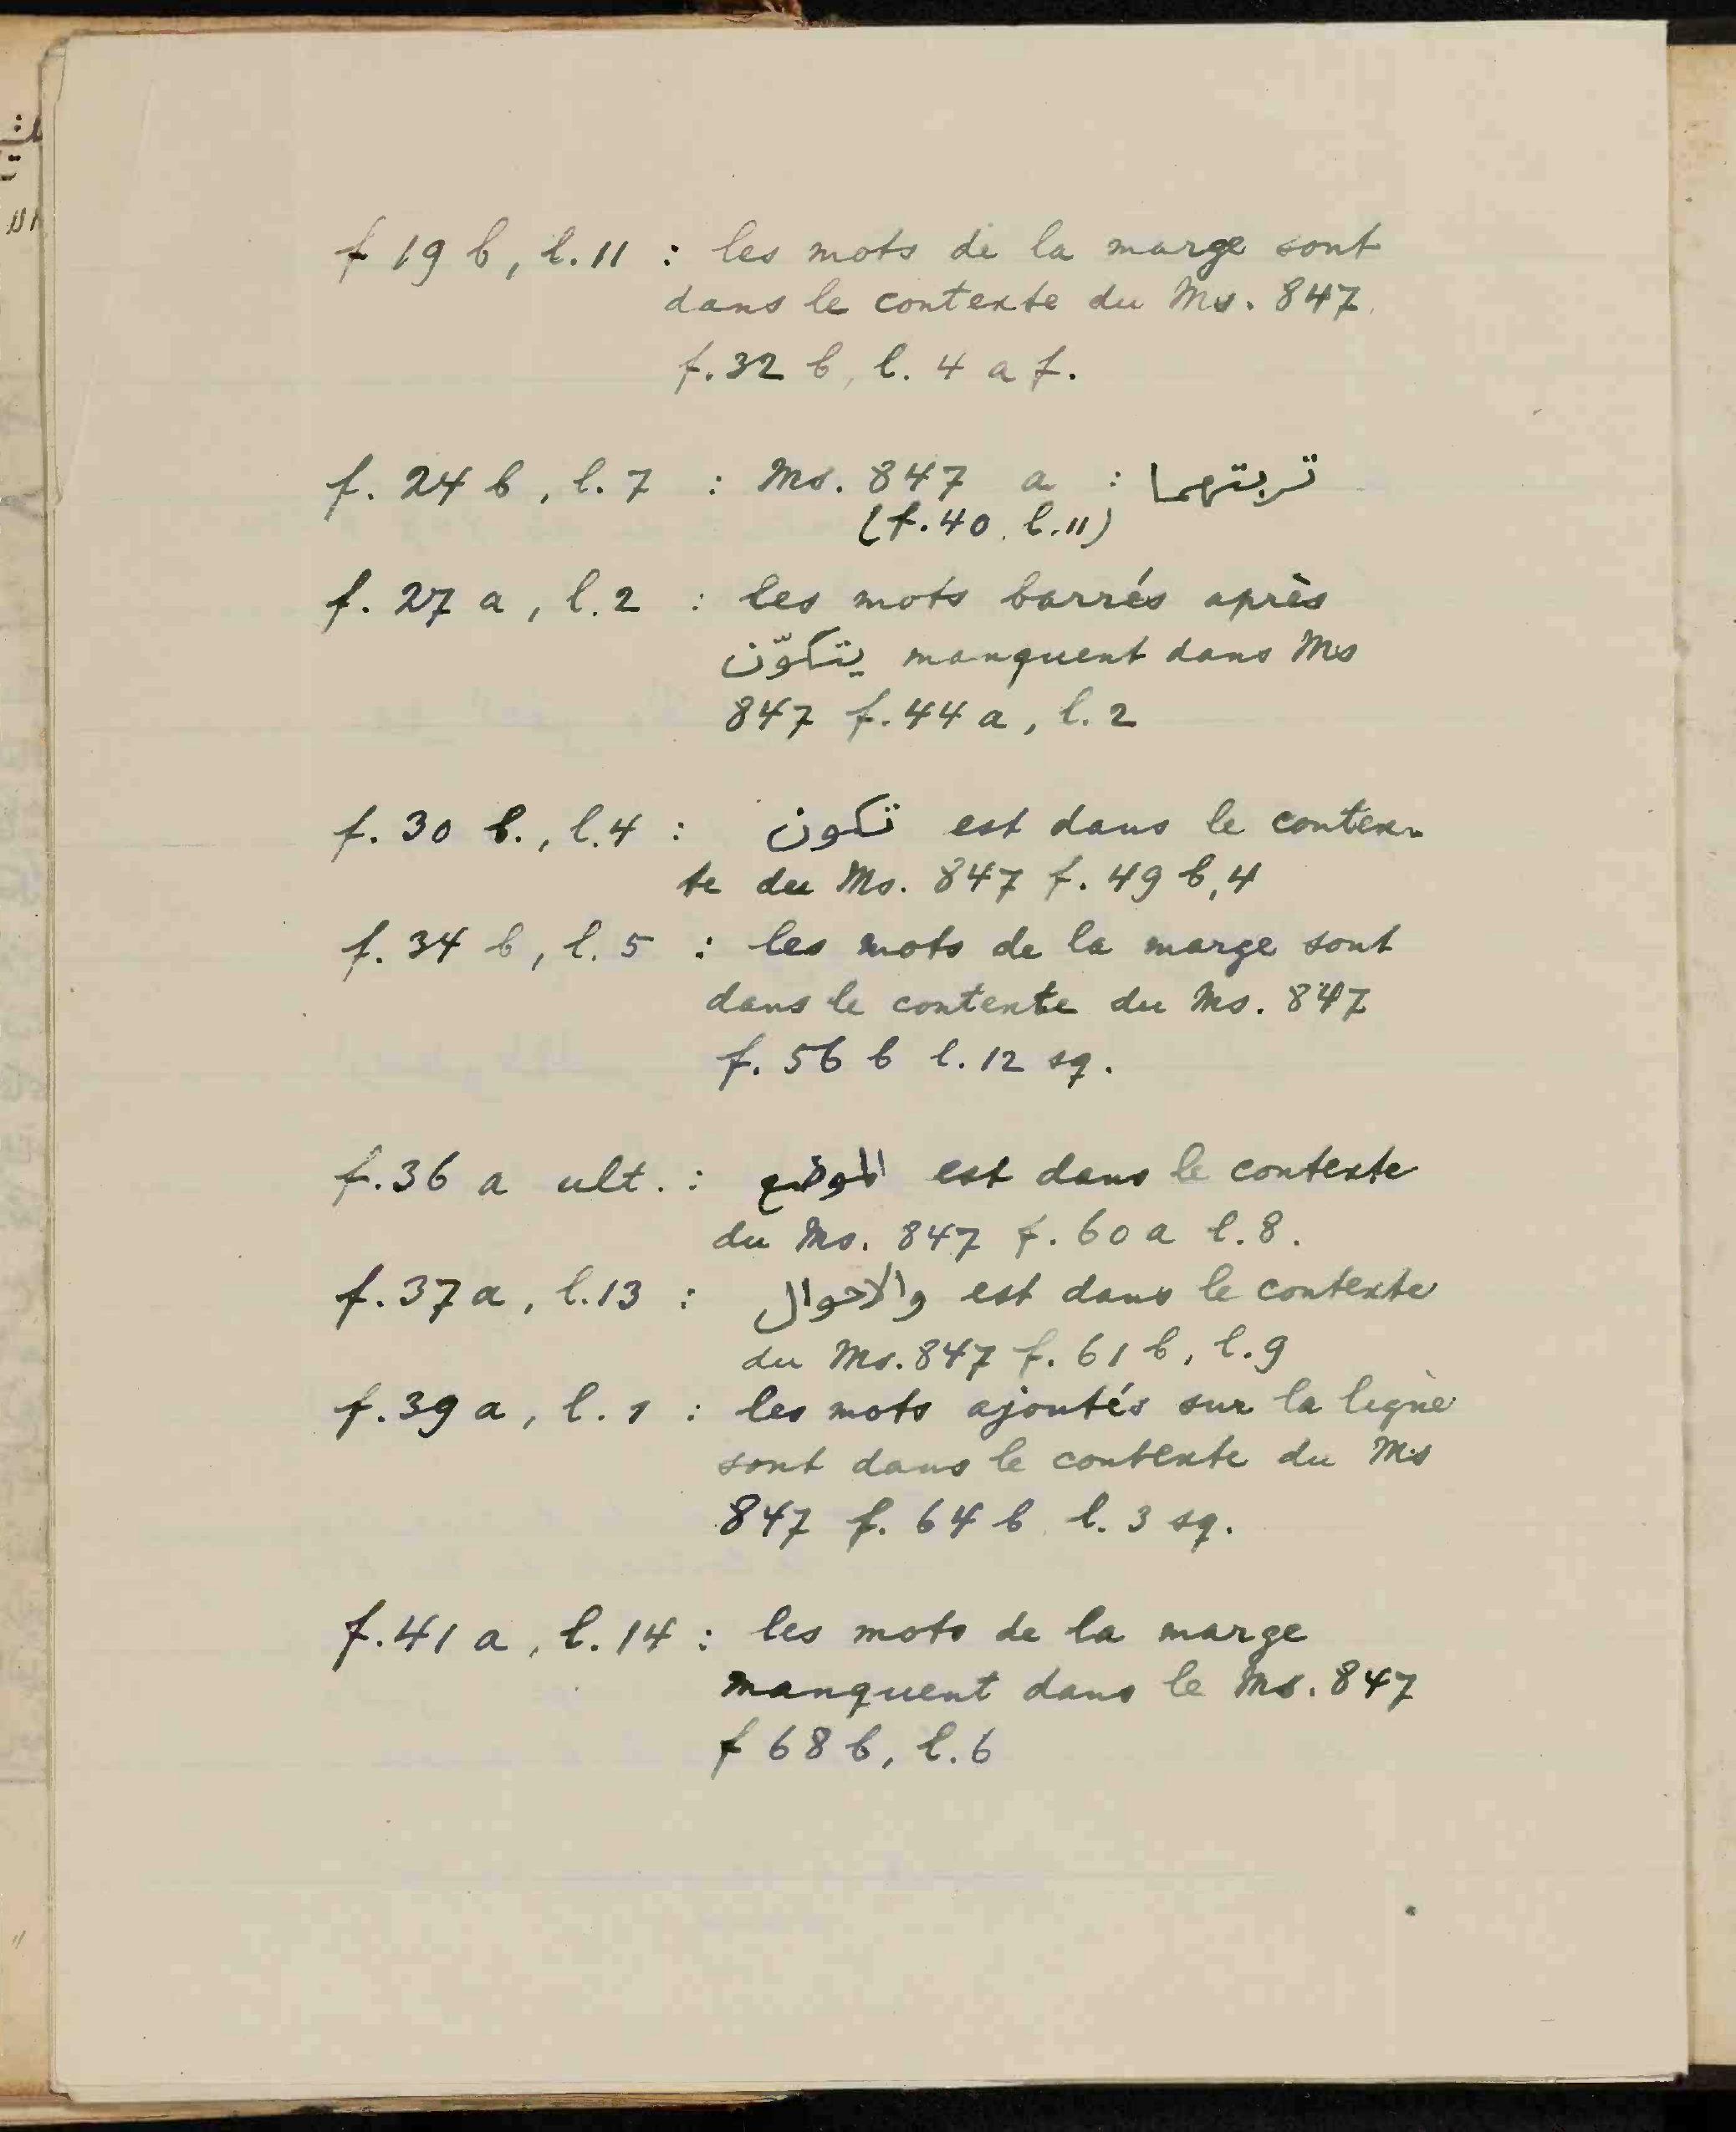 f 19 b, l. 11 : les mots de la marge sont
dans le contexte du Ms. 847
f. 32 b, l. 4 a f.
f. 24 b, l. 7 : Ms. 847 a : تربتهما
(f. 40, l. 11)
f. 27 a, l. 2 : les mots barrés après
يتكوّن manquent dans Ms
847 f. 44 a, l. 2
f. 30 b., l. 4 : تكون est dans le contex-
te du Ms. 847 f. 49 b, 4
f. 34 b, l. 5 : les mots de la marge sont
dans le contexte du Ms. 847
f. 56 b l. 12 sq.
f. 36 a ult. : الموضع est dans le contexte
du Ms. 847 f. 60 a l. 8.
f. 37 a, l. 13 : والاحوال est dans le contexte
du Ms. 847 f. 61 b, l. 9
f. 39 a, l. 1 : les mots ajoutés sur la ligne
sont dans le contexte du Ms
847 f. 64 b l. 3 sq.
f. 41 a, l. 14 : les mots de la marge
manquent dans le Ms. 847
f 68 b, l. 6